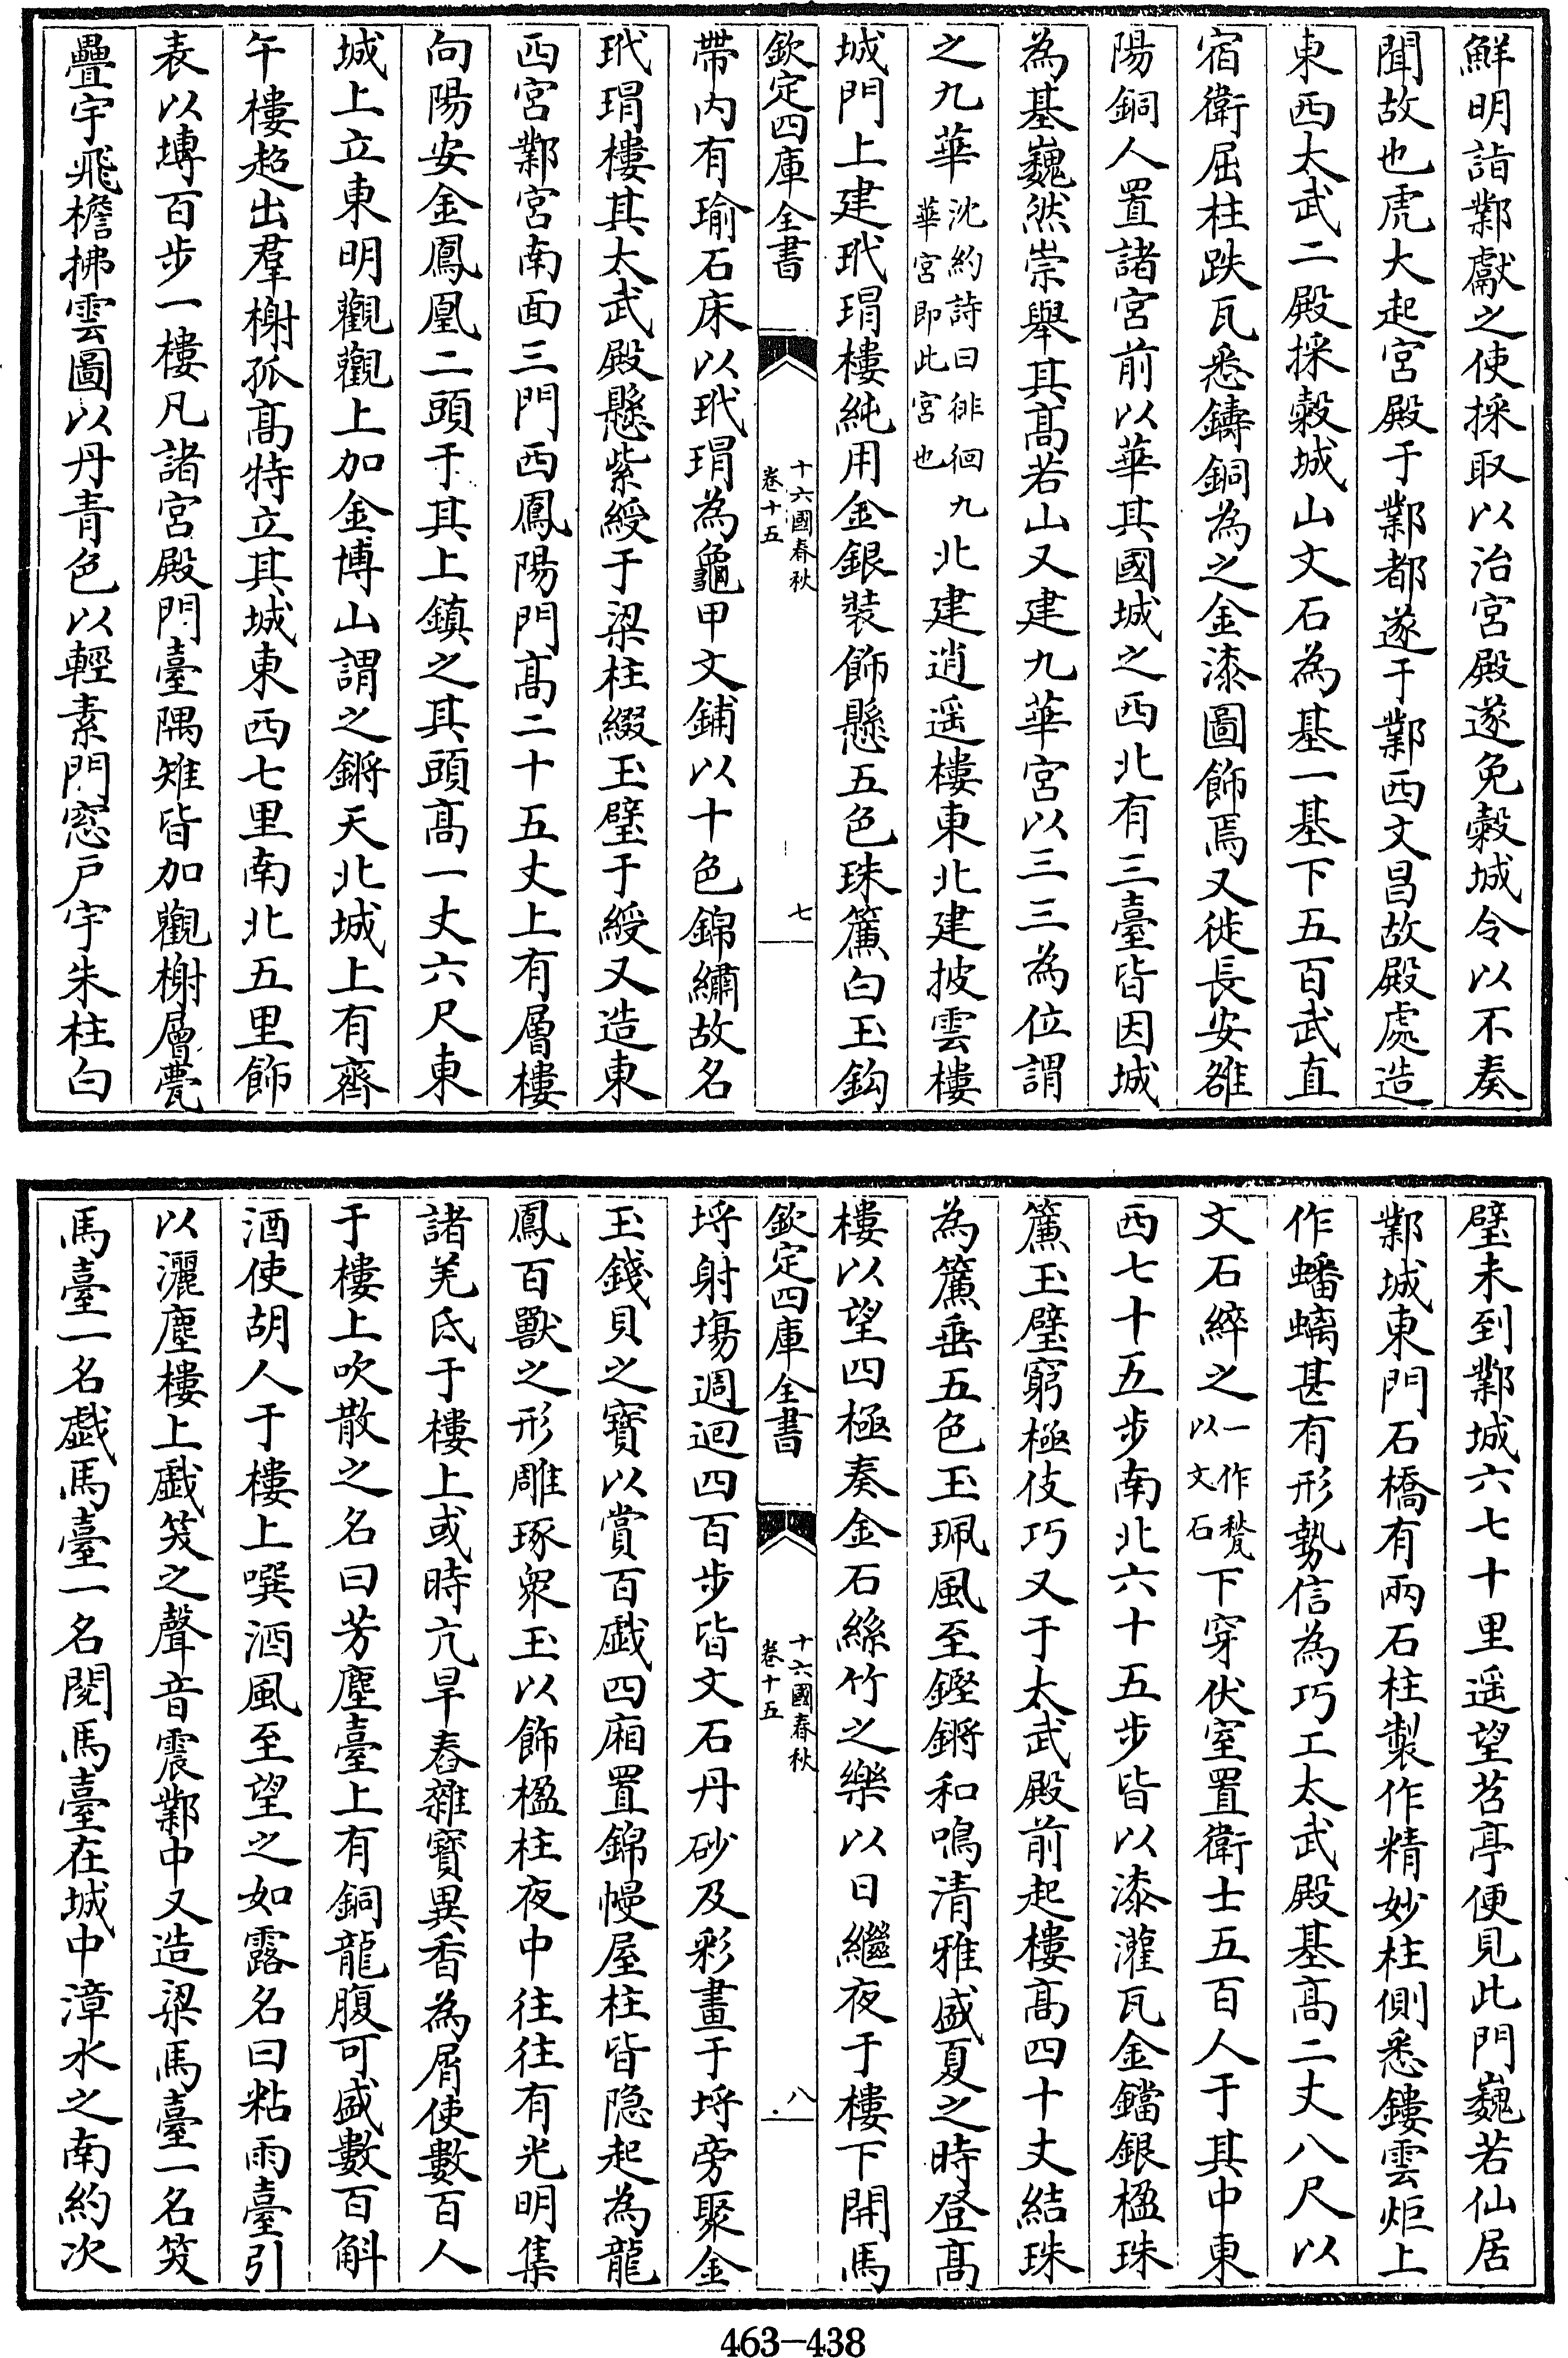 鮮明詣鄴獻之使採取以治宮殿遂免穀城令以不奏
聞故也虎大起宮殿于鄴都遂于鄴西文昌故殿處造
東西太武二殿採穀城山文石為基一基下五百武直
宿衛屈柱趺瓦悉鑄銅為之金漆圖飾焉又徙長安雒
陽銅人置諸宮前以華其國城之西北有三臺皆因城
為基巍然崇舉其髙若山又建九華宮以三三為位謂
之九華沈約詩曰徘徊九華宮即此宮也北建逍遥樓東北建披雲樓
城門上建玳瑁樓純用金銀裝飾懸五色珠簾白玉鈎
欽定四庫全書
十六國春秋
卷十五
七
帶内有瑜石床以玳瑁為龜甲文鋪以十色錦繡故名
玳瑁樓其太武殿懸紫綬于梁柱綴玉璧于綬又造東
西宮鄴宮南面三門西鳳陽門髙二十五丈上有層樓
向陽安金鳳凰二頭于其上鎮之其頭髙一丈六尺東
城上立東明觀觀上加金博山謂之鏘天北城上有齊
午樓超出羣榭孤髙特立其城東西七里南北五里飾
表以塼百步一樓凡諸宮殿門臺隅雉皆加觀榭層甍
疊宇飛檐拂雲圖以丹青色以輕素門窓戸宇朱柱白
壁未到鄴城六七十里遥望苕亭便見此門巍若仙居
鄴城東門石橋有兩石柱製作精妙柱側悉鏤雲炬上
作蟠螭甚有形勢信為巧工太武殿基髙二丈八尺以
文石綷之一作甃以文石下穿伏室置衛士五百人于其中東
西七十五步南北六十五步皆以漆灌瓦金鐺銀楹珠
簾玉璧窮極伎巧又于太武殿前起樓髙四十丈結珠
為簾垂五色玉珮風至鏗鏘和鳴清雅盛夏之時登髙
樓以望四極奏金石絲竹之樂以日繼夜于樓下開馬
欽定四庫全書
十六國春秋
卷十五
八
埒射塲週迴四百步皆文石丹砂及彩畫于埒旁聚金
玉錢貝之寶以賞百戯四廂置錦幔屋柱皆隐起為龍
鳳百獸之形雕琢衆玉以飾楹柱夜中往往有光明集
諸羌氐于樓上或時亢旱舂雜寶異香為屑使數百人
于樓上吹散之名曰芳塵臺上有銅龍腹可盛數百斛
酒使胡人于樓上噀酒風至望之如露名曰粘雨臺引
以灑塵樓上戯笑之聲音震鄴中又造梁馬臺一名笑
馬臺一名戯馬臺一名閲馬臺在城中漳水之南約次
463-438